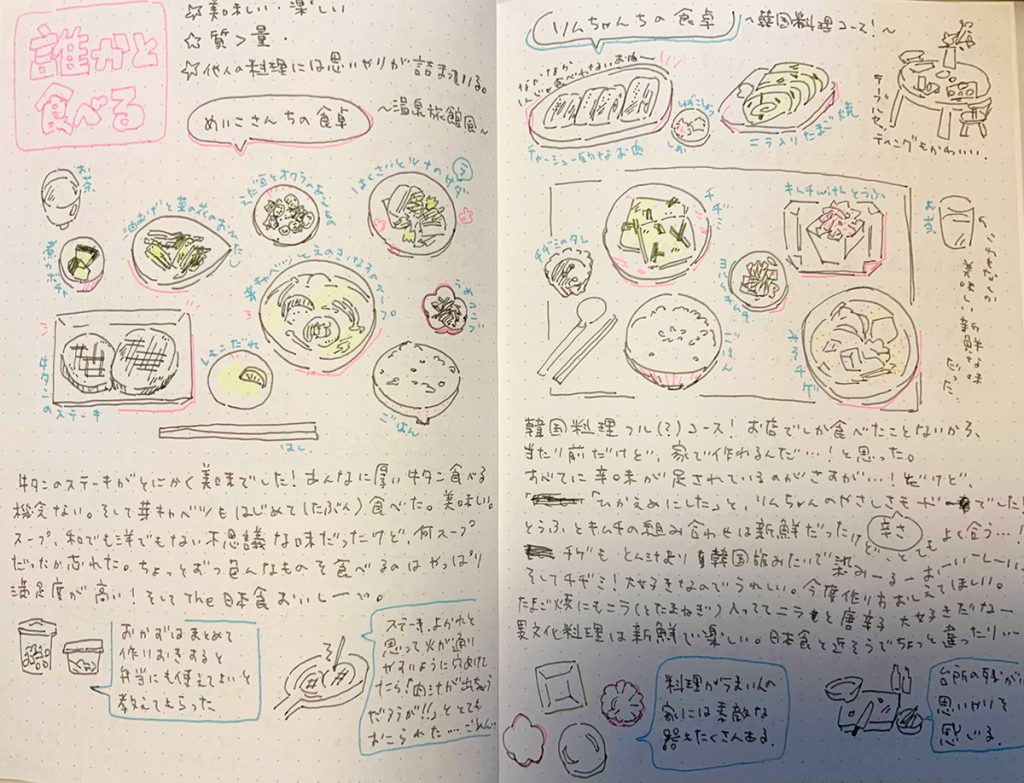 誰かと
食べる
☆美味しい・楽しい
☆質>量。
☆他人の料理には思いやりが詰まっている。
めいこさんちの食卓
〜温泉旅館風〜
お茶
煮カボチャ
油あげと菜の花のおひたし
はくさいとツナのサラダ
うめコンブ
牛タンのステーキ
しょこだれ
ごはん
はし
牛タンのステーキがとにかく美味でした!あんなに厚い牛タン食べる
機会ない。そして芽キャベツもはじめて(たぶん)食べた。美味しい。
スープ、和でも洋でもない不思議な味だったけど、何スープ
だったか忘れた。ちょっとずつ色んなものを食べるのはやっぱり
満足度が高い!そしてthe日本食おいしーい。
おかずはまとめて
作りおきすると
弁当にも使えてよいと
教えてもらった
ステーキ、よかれと
思って火が通り
やすいように穴あけて
たら「肉汁が出ちゃう
だろうが!!」ととても
おこられた…ごめん
りんちゃんちの食卓
〜韓国料理コース!〜
なかなか
食べれないお肉〜
チャーシュー的なお肉
ニラ入りたまご焼
テーブルセッティングもかわいい。
チヂミ
チヂミのタレ
キムチwithとうふ
お茶
ごはん
みそチゲ
美味しい新鮮な味だった。
韓国料理フル(?)コース!お店でしか食べたことないから、
当たり前だけど、家で作れるんだ…!と思った。
すべてに辛味が足されているのがさすが…!だけど、
「ひかえめにした」と、りんちゃんのやさしさモードでした
とうふとキムチの組み合わせは新鮮だったけど、とてもよく合う…!
辛さ
チゲもとん汁より韓国版みたいで染みーるーおーいーしーい
そしてチヂミ!大好きなのでうれしい。今度作り方おしえてほしい。
たまご焼にもニラ(とたまねぎ)入ってて ニラと唐辛子大好きだなー
異文化料理は新鮮で楽しい。日本食と近そうでちょっと違ったり…
料理がうまい人の
家には素敵な
器もたくさんある。
台所の
思いやりを
感じる。